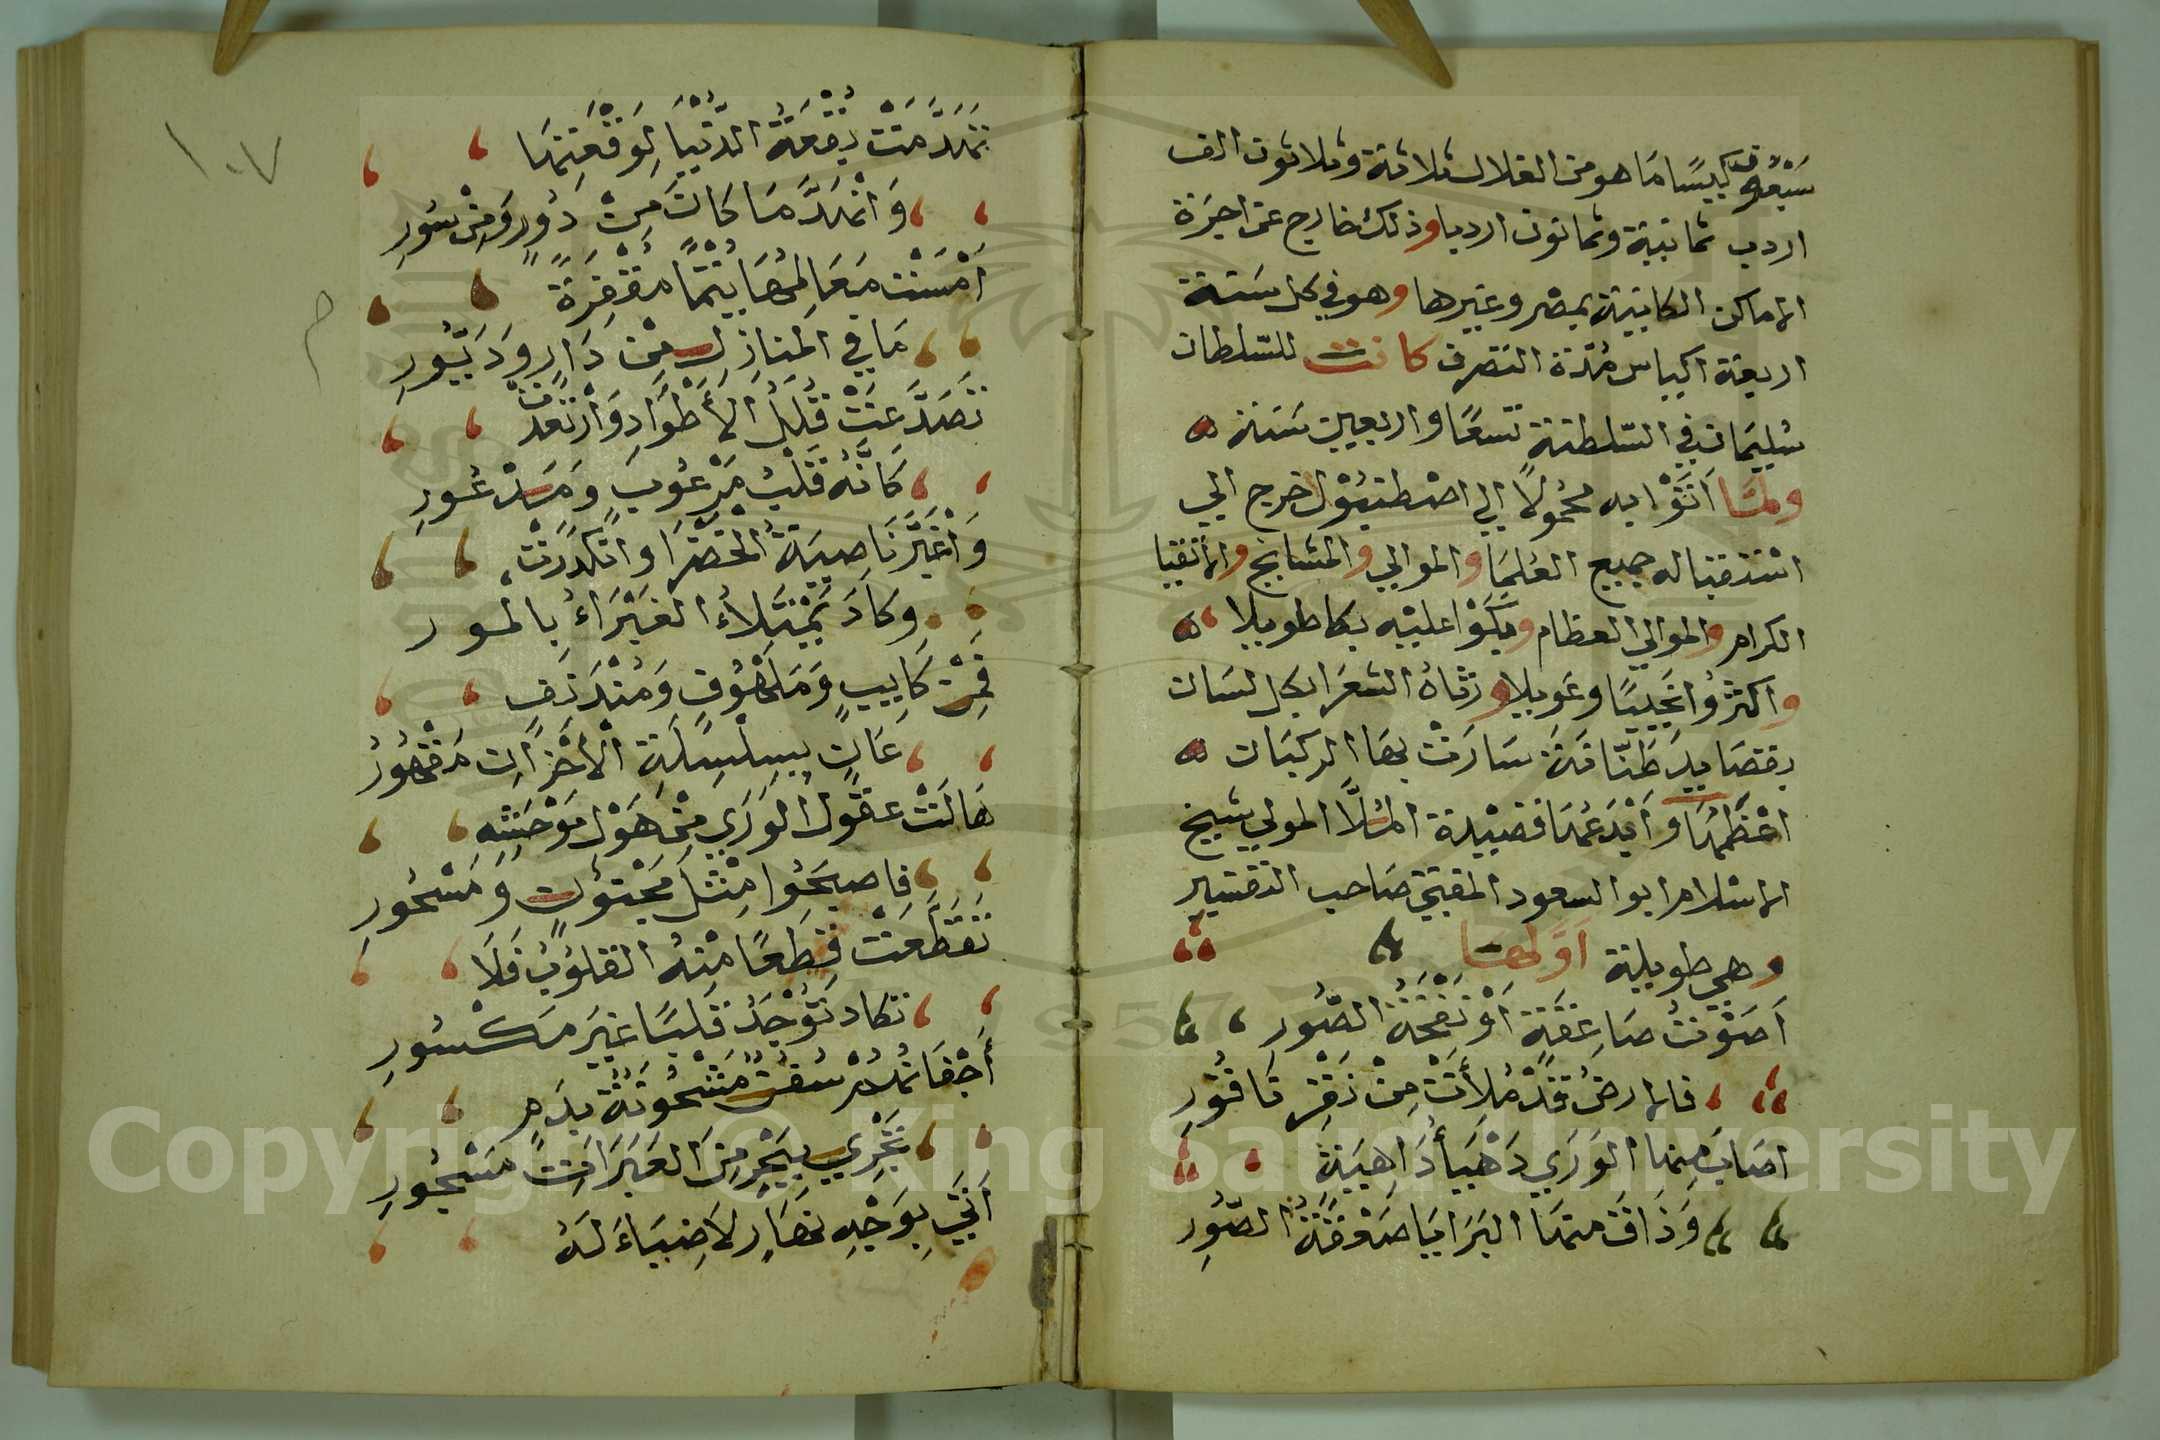 سبعون كيسًا ما هو من الغلال ثلاثة وثلاثون الف
اردب ثمانية وثمانون اردبا وذلك خارج عن اجرة
الاماكن الكاينة بمصر وغيرها وهو في كل سنة
اربعة اكياس مدة التصرف كانت للسلطان
سليمان في السلطنة تسعًا واربعين سنة
ولما اتوا به محمولًا الي اصطنبول خرج الي
استقباله جميع العلما والموالي والمشايخ والاتقيا
الكرام والموالي العظام وبكوا عليه بكا طويلا
واكثروا نحيبًا وعويلا ورثاه الشعرا بكل لسان
بقصايد طنانة سارت بها الركبان
اعظمها وابدعها قصيدة الملّا المولي شيخ
الاسلام ابو السعود المفتي صاحب التفسير
وهي طويلة اولها
اَصَوْتُ صَاعِقَةٍ اَوْ نَفْخَةُ الصُّورِ
فالارضُ قَدْ مُلأَتْ مِنْ نَقْرِ نَاقُورِ
اصَابَ مِنها الوَرَي دَهْيَأُ دَاهِيَة
وَذَاقَ منها البَرَايَا صَعْقَةُ الصُّورِ
١٠٧
تَهَدَّمَتْ بُقْعَةُ الدُّنْيَا لِوَقْعَتِهَا
وَانْهَدَّ مَا كَانَ مِنْ دُورٍ وَمِنْ سُورِ
اَمْسَتْ مَعَالِمُهَا يُتْمًا مُقْفِرَةً
مَا فِي المنازِلِ مِنْ دَارٍ وَدَيُّورِ
تَصَدَّعَتْ قُلَلُ الأَطْوَادِ وَارْتَعَدَتْ
كَانَّهُ قَلْبُ مَرْعُوبٍ وَمَذْعُورِ
وَاغْبَرَّ نَاصِيَةُ الخَضْرَا وانكَدَرَتْ
وكَادَ يَمْتَلاُ الغَبْرَاءُ بِالمور
فَمِنْ كَاِيبٍ وَمَلْهُوفٍ وَمُنْدَنِفٍ
عَانٍ بِسِلْسِلَةِ الاَحْزَانِ مَقْهُورُ
هَالَتْ عقُولَ الوَرَي مِنْ هَوْلِ مَوْحَشَتِهِ
فاصبَحُوا مِثْلَ مَجْنُونٍ وَمَسْحُورِ
تَقَطَّعَتْ قِطَعًا مِنْهُ القلوبُ فَلَا
تكاد تَوْجَدُ قَلبًا غيرَ مكْسُورِ
أَجْفَانُهُمْ سُفُنٌ مَشْحُونَةٌ بدَمٍ
تَجْرِي بِبَحْرٍ مِنَ العَبَرَاتِ مَسْجُورِ
اَتَي بِوَجْهِ نهَارٍ لاَ ضِيَاءَ لَهُ
Copyright © King Saud University
1957